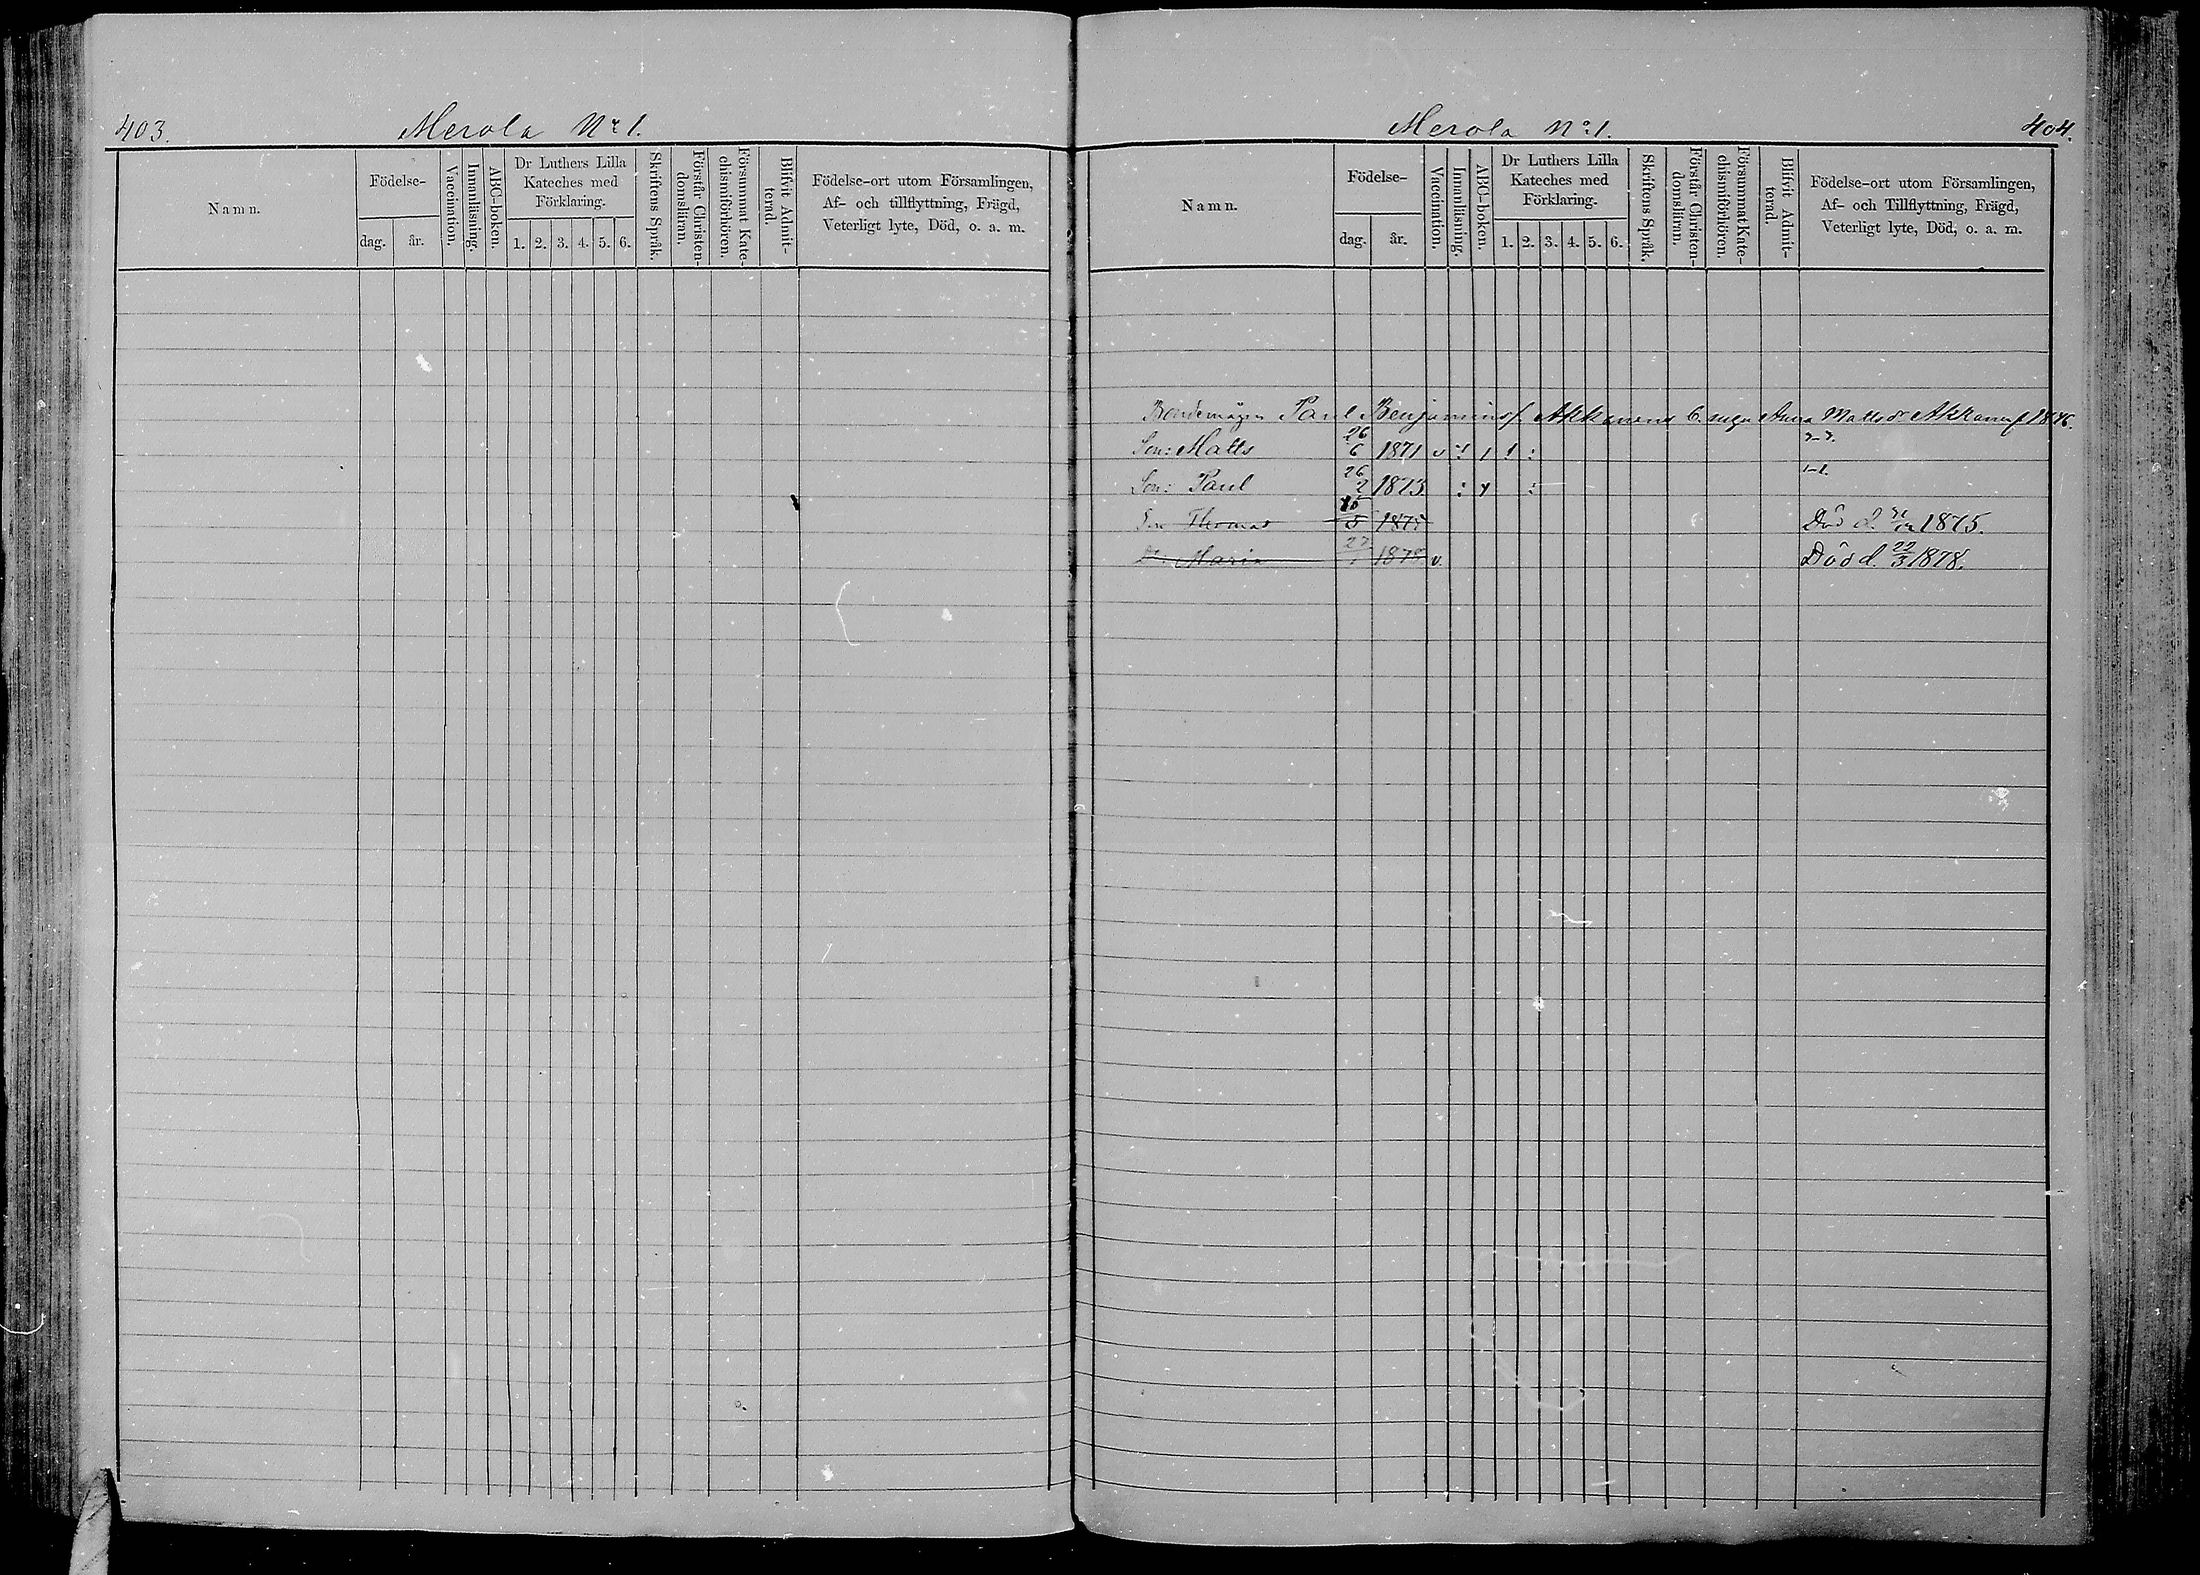 403.
Merola No 1.
Namn.
Födelse-
dag.
år.
Vaccination.
Innanläsning.
ABC-boken.
Dr Luthers Lilla
Kateches med
Förklaring.
1. 2. 3. 4. 5. 6.
Skriftens Språk.
Förstår Christen-
domsläran.
Försummat Kate-
chismförhören.
Blifvit Admit-
terad.
Födelse-ort utom Församlingen,
Af- och tillflyttning, Frägd,
Veterligt lyte, Död, o. a. m.
Merola No 1.
404.
Namn.
Födelse-
dag.
år.
Vaccination.
Innanläsning.
ABC-boken.
Dr Luthers Lilla
Kateches med
Förklaring.
1. 2. 3. 4. 5. 6.
Skriftens Språk.
Förstår Christen-
domsläran.
Försummat Kate-
chismförhören.
Blifvit Admit-
terad.
Födelse-ort utom Församlingen,
Af- och Tillflyttning, Frägd,
Veterligt lyte, Död, o. a. m.
Paul Benjaminsf. Akkanens Anna Mattsdr Akkanen f 1846.
Son: Matts 26/6 1871 v
Son: Paul 26/2 1873
Son Thomas 15/5 1875 Död d. 1875.
Dr: Maria 27/1 1878 v. Död d. 22/3 1878.